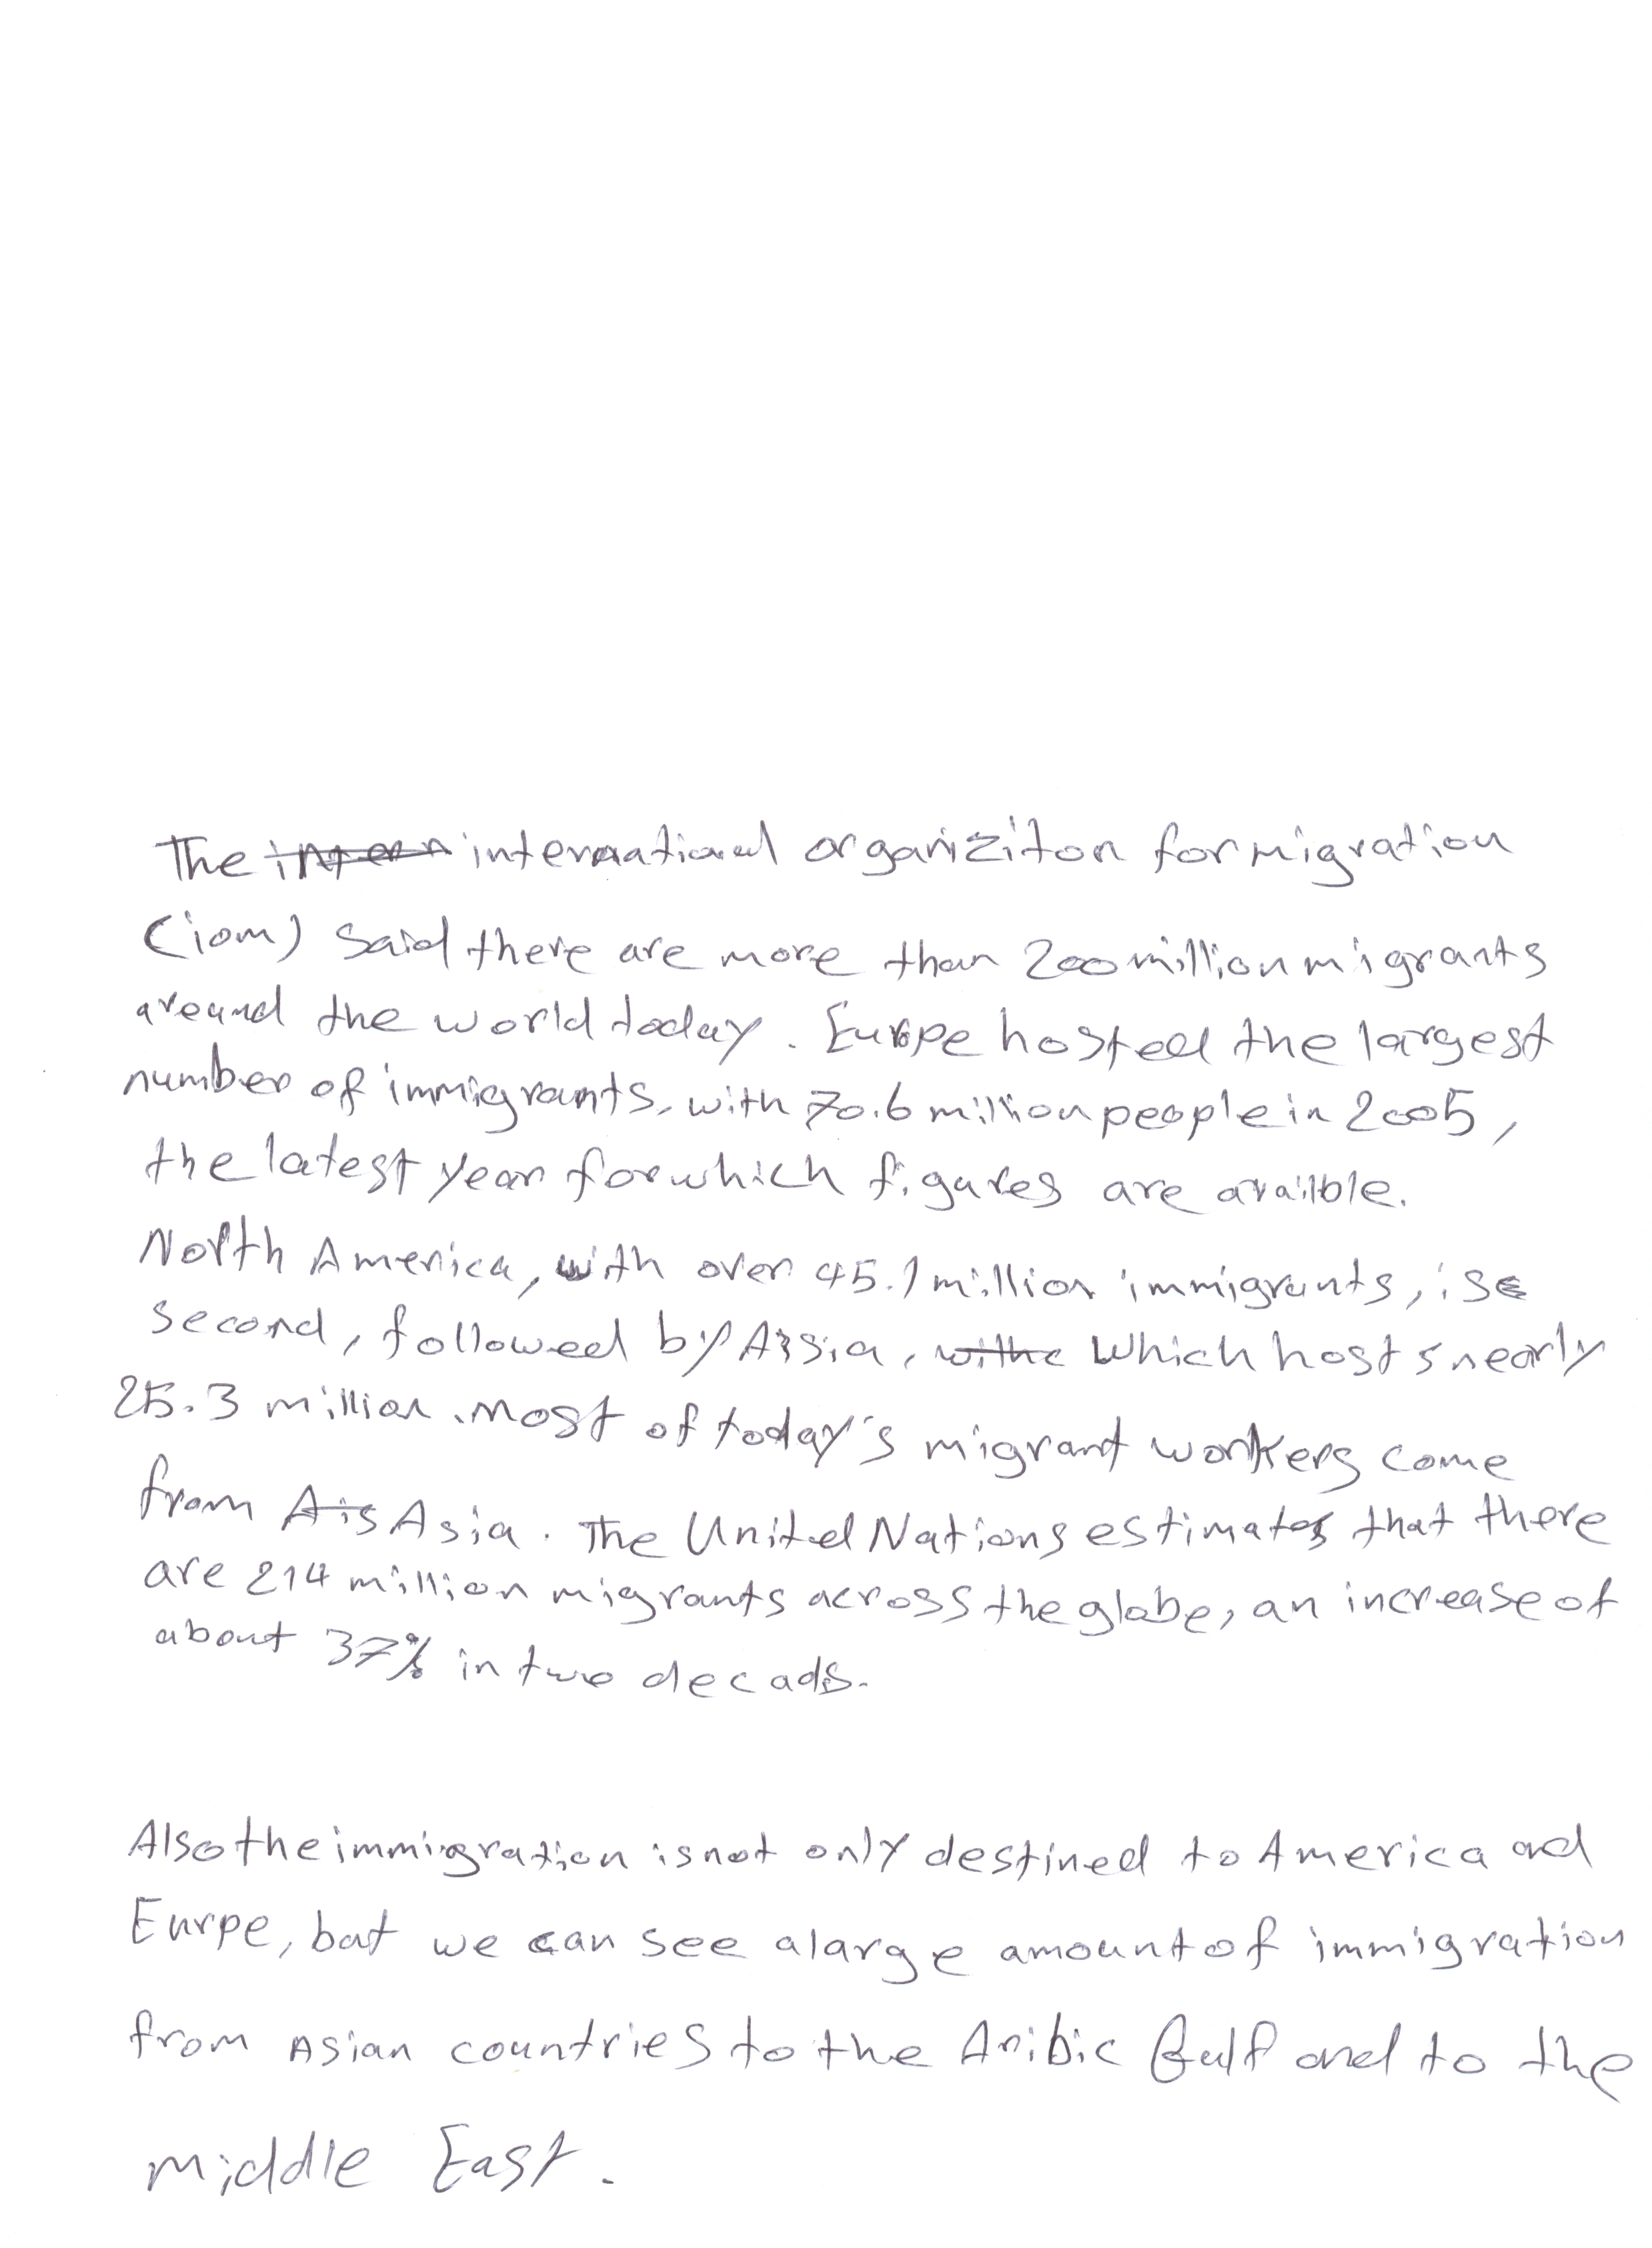 The international organiziton for migration
(iom) said there are more than 200 million migrants
around the world today. Eurpe hosted the largest
number of immigrants, with 70.6 million people in 2005,
the latest year for which figures are availble.
North America, with over 45.1 million immigrants, is
second, followed by Asia, which hosts nearly
25.3 million. most of today's migrant workers come
from Asia. The United Nations estimates that there
are 214 million migrants across the globe, an increase of
about 37% in two decads.
Also the immigration is not only destined to America ad
Eurpe, but we can see a large amount of immigration
from Asian countries to the Aribic Gulf and to the
middle East.